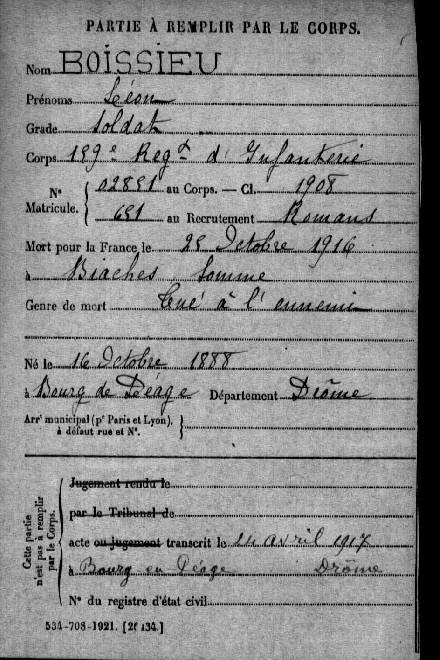 PARTIE À REMPLIR PAR LE CORPS.
Nom BOISSIEU
Prénoms Léon
Grade Soldat
Corps 189e Regt d'Infanterie
N° Matricule. { 02851 au Corps. — Cl. 1908
651 au Recrutement Romans
Mort pour la France le 25 Octobre 1916
à Biaches Somme
Genre de mort Tué à l'ennemi
Né le 16 Octobre 1888
à Bourg de Péage Département Drôme
Arrt municipal (pr Paris et Lyon),
à défaut rue et N°.
Cette partie n'est pas à remplir par le Corps.
Jugement rendu le
par le Tribunal de
acte ou jugement transcrit le avril 1917
à Bourg en Péage Drôme
N° du registre d'état civil
534-708-1921. [26434.]